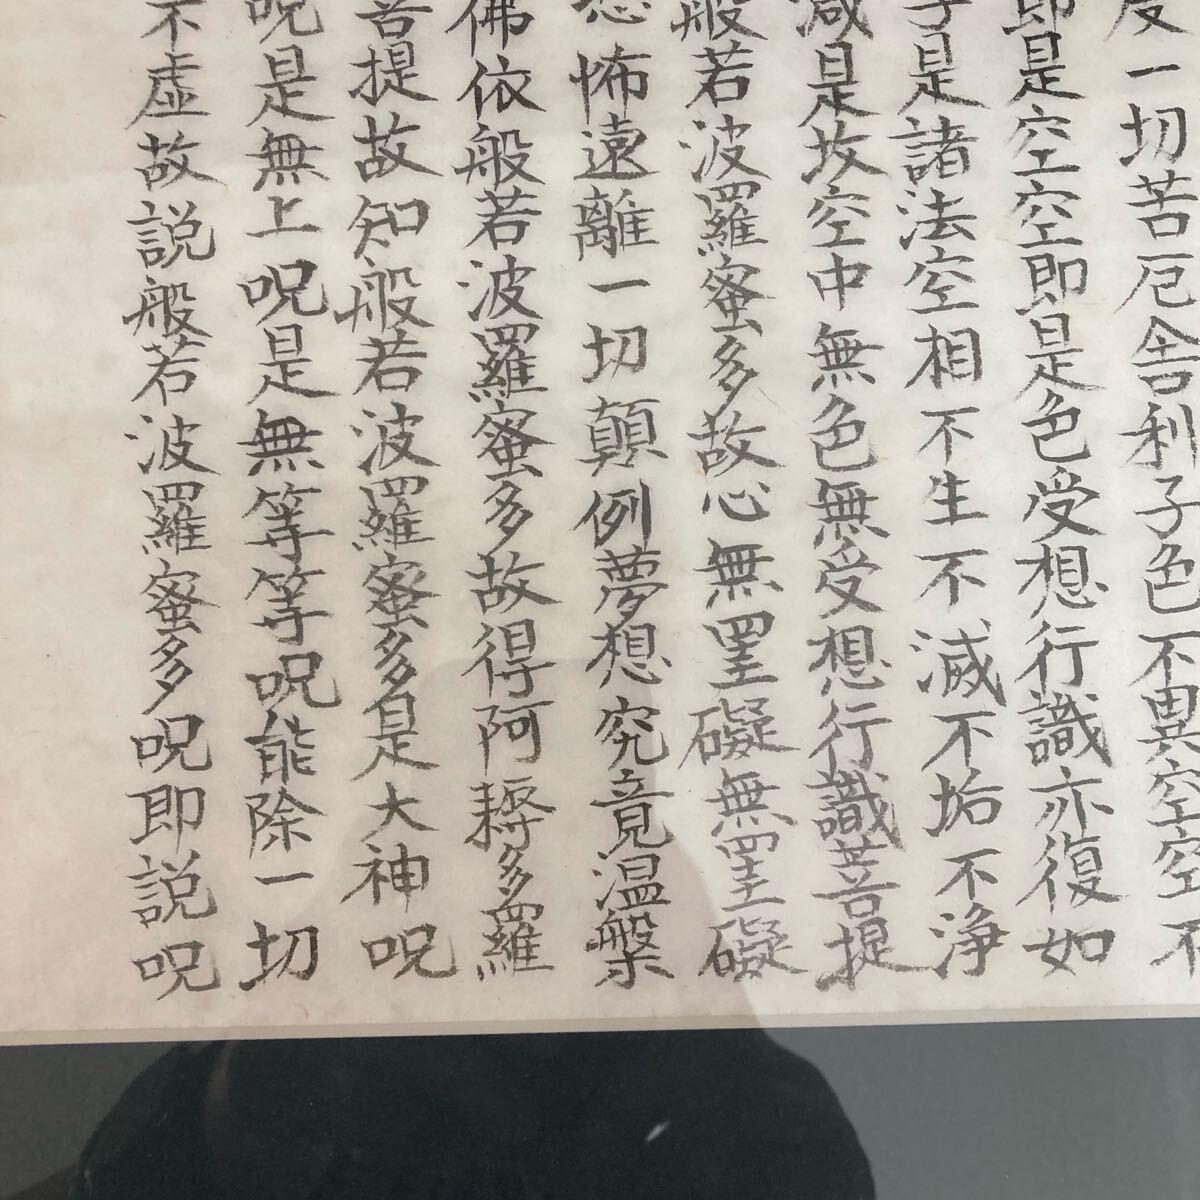 度一切苦厄舎利子色不異空空不
即是空空即是色受想行識亦復如
子是諸法空相不生不滅不垢不浄
滅是故空中無色無受想行識菩提
般若波羅蜜多故心無罣礙無罣礙
恐怖遠離一切顛例夢想究竟温槃
佛依般若波羅蜜多故得阿耨多羅
菩提故知般若波羅蜜多是大神呪
呪是無上呪是無等等呪能除一切
不虚故説般若波羅蜜多呪即説呪